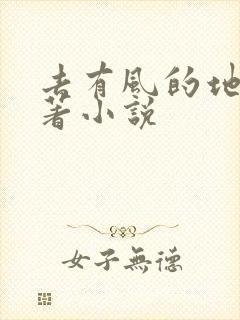 去有风的地
著小說
女子無德